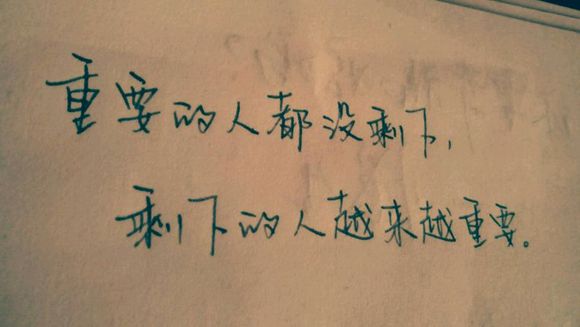 重要的人都没剩下，
剩下的人越来越重要。